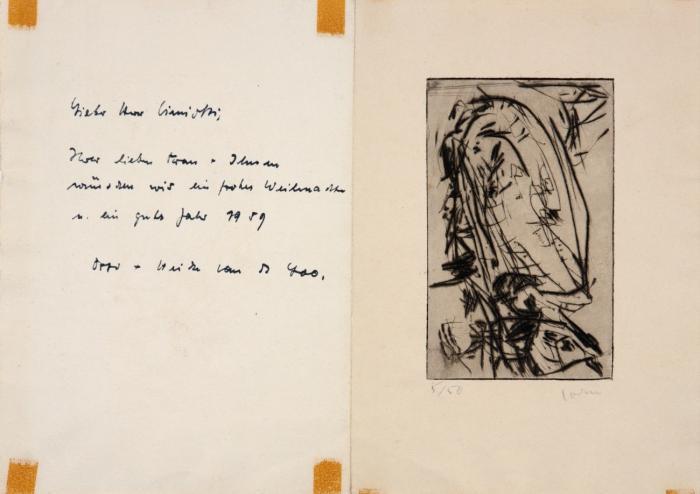 Lieber Herr
Ihrer lieben Frau + Ihnen
wünschen wir ein frohes Weihnachten
u. ein gutes Jahr 1959
Otto + Heide van de Loo.
5/50